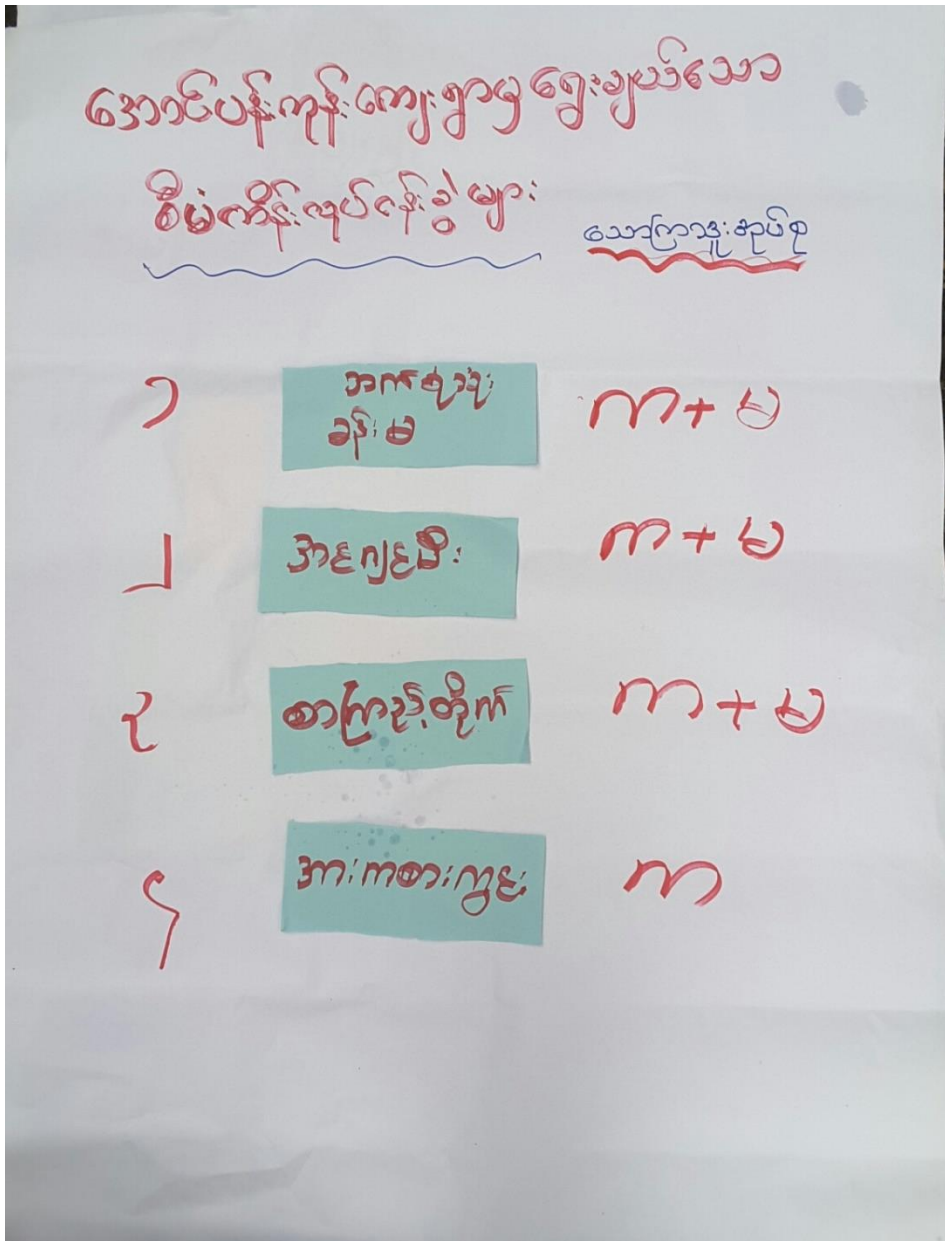 အောင်ပန်းကုန်းကျေးရွာမှ ရွေးချယ်သော
စီမံကိန်းလုပ်ငန်းခွဲများ
သောကြာဒူးအုပ်စု
၁ ဘက်စုံသုံး ကာ + မ
ခန်းမ
၂ အင်ဂျင်မီး ကာ + မ
၃ စာကြည့်တိုက် ကာ + မ
၄ အားကစားကွင်း ကာ